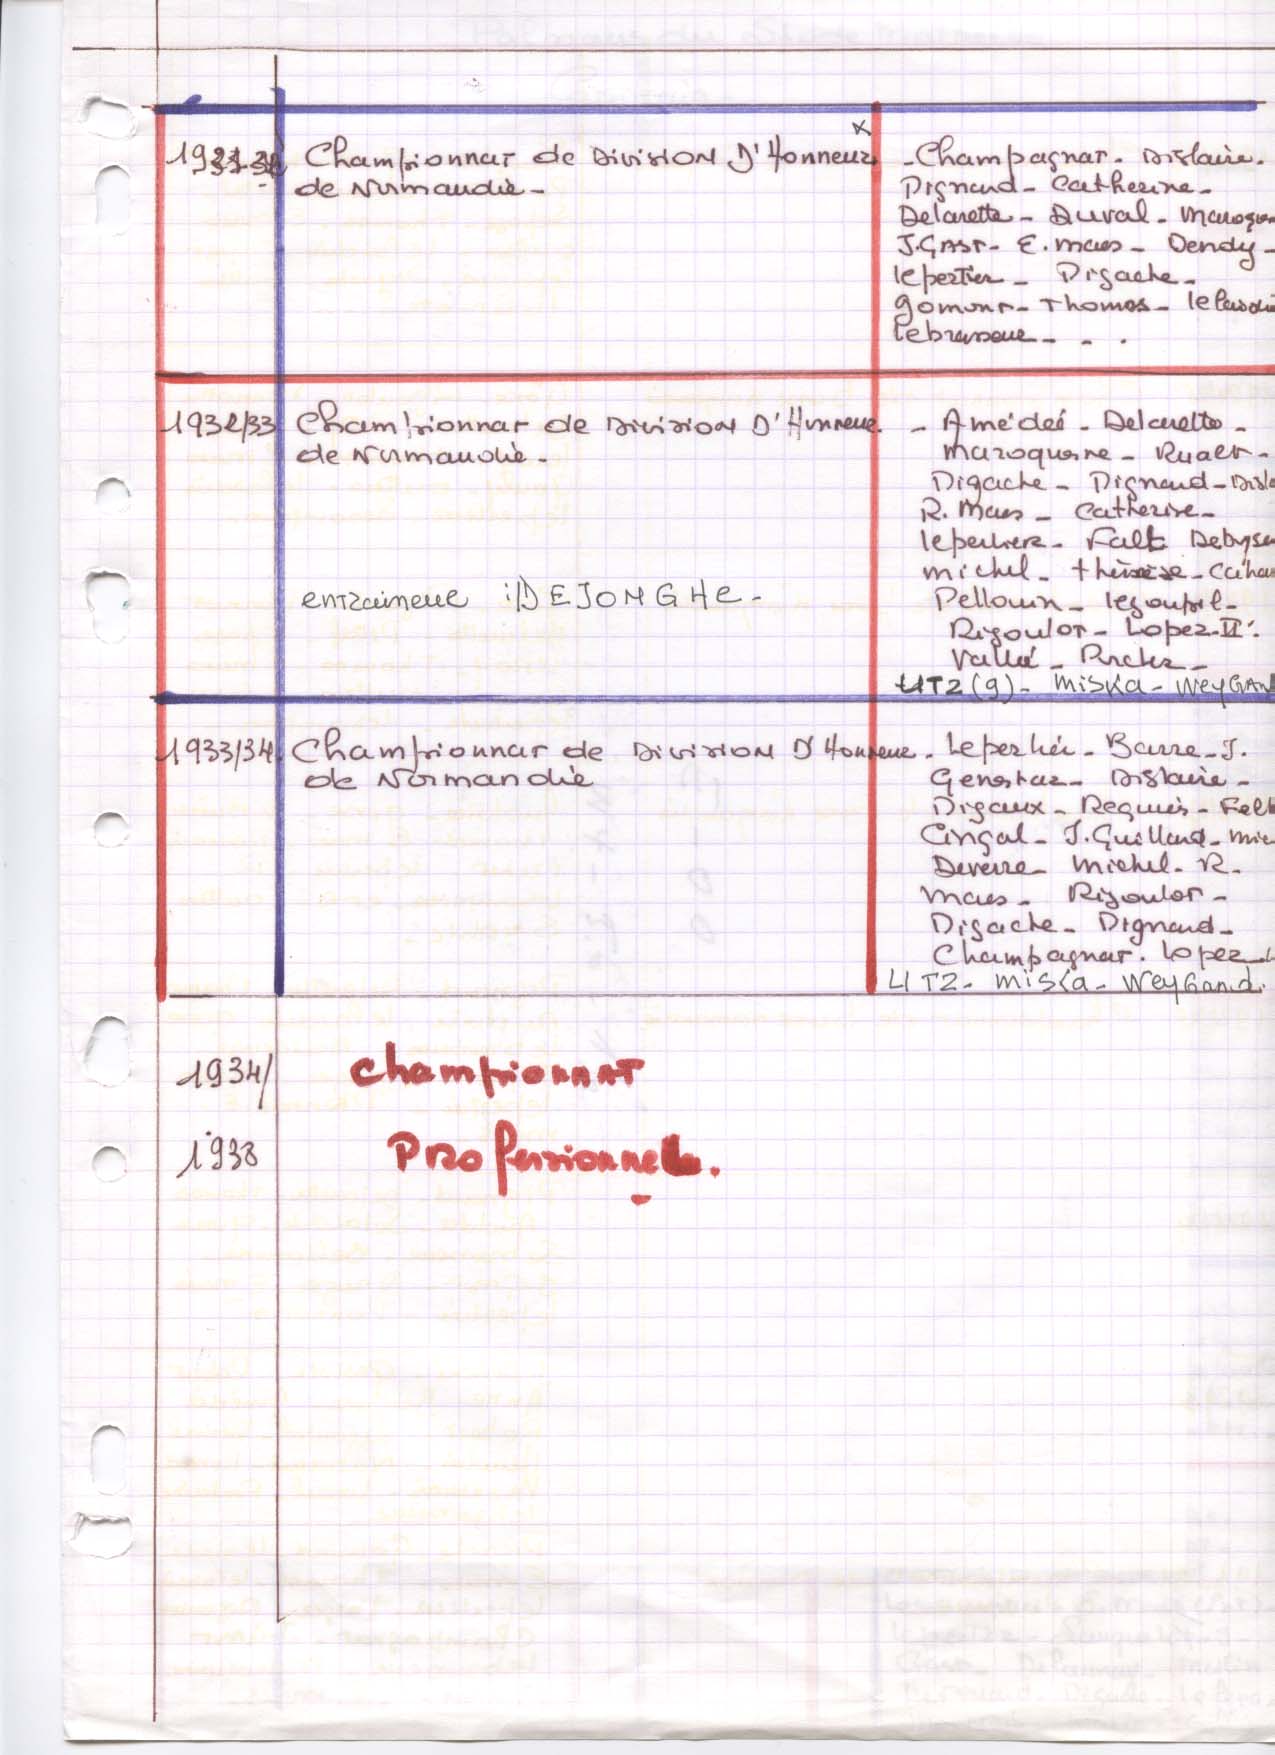 1931-32 Championnat de Division D'Honneur
de Normandie -
- Champagnat - Dislaire -
Dignard - Catherine -
Delarette - Duval -
J. GAST - E. maes - Dendy -
lepertier - Digache -
gomont - Thomas -
lebrasseur - - .
1932/33 Championnat de Division D'Honneur
de Normandie -
entraineur : DEJONGHE -
- Amédée - Delarette -
maroquesne - Ruaer -
Digache - Dignard -
R. Maes - Catherine -
Falt
michel -
Pellouin - legoupil -
Rigoulot - Lopez II.
Vallée -
UTZ (9) - MISKA - WEYGAN
1933/34 Championnat de Division D'Honneur
de Normandie
- Leperlier - Barre - J.
Genestaz - Dislaire -
Digaux - Requiès -
Cingal - J. Guillard -
michel - R.
maes - Rigoulot -
Digache - Dignard -
Champagnat - Lopez
UTZ - MISKA - WEYGand.
1934/ championnat
1938 Professionnel.